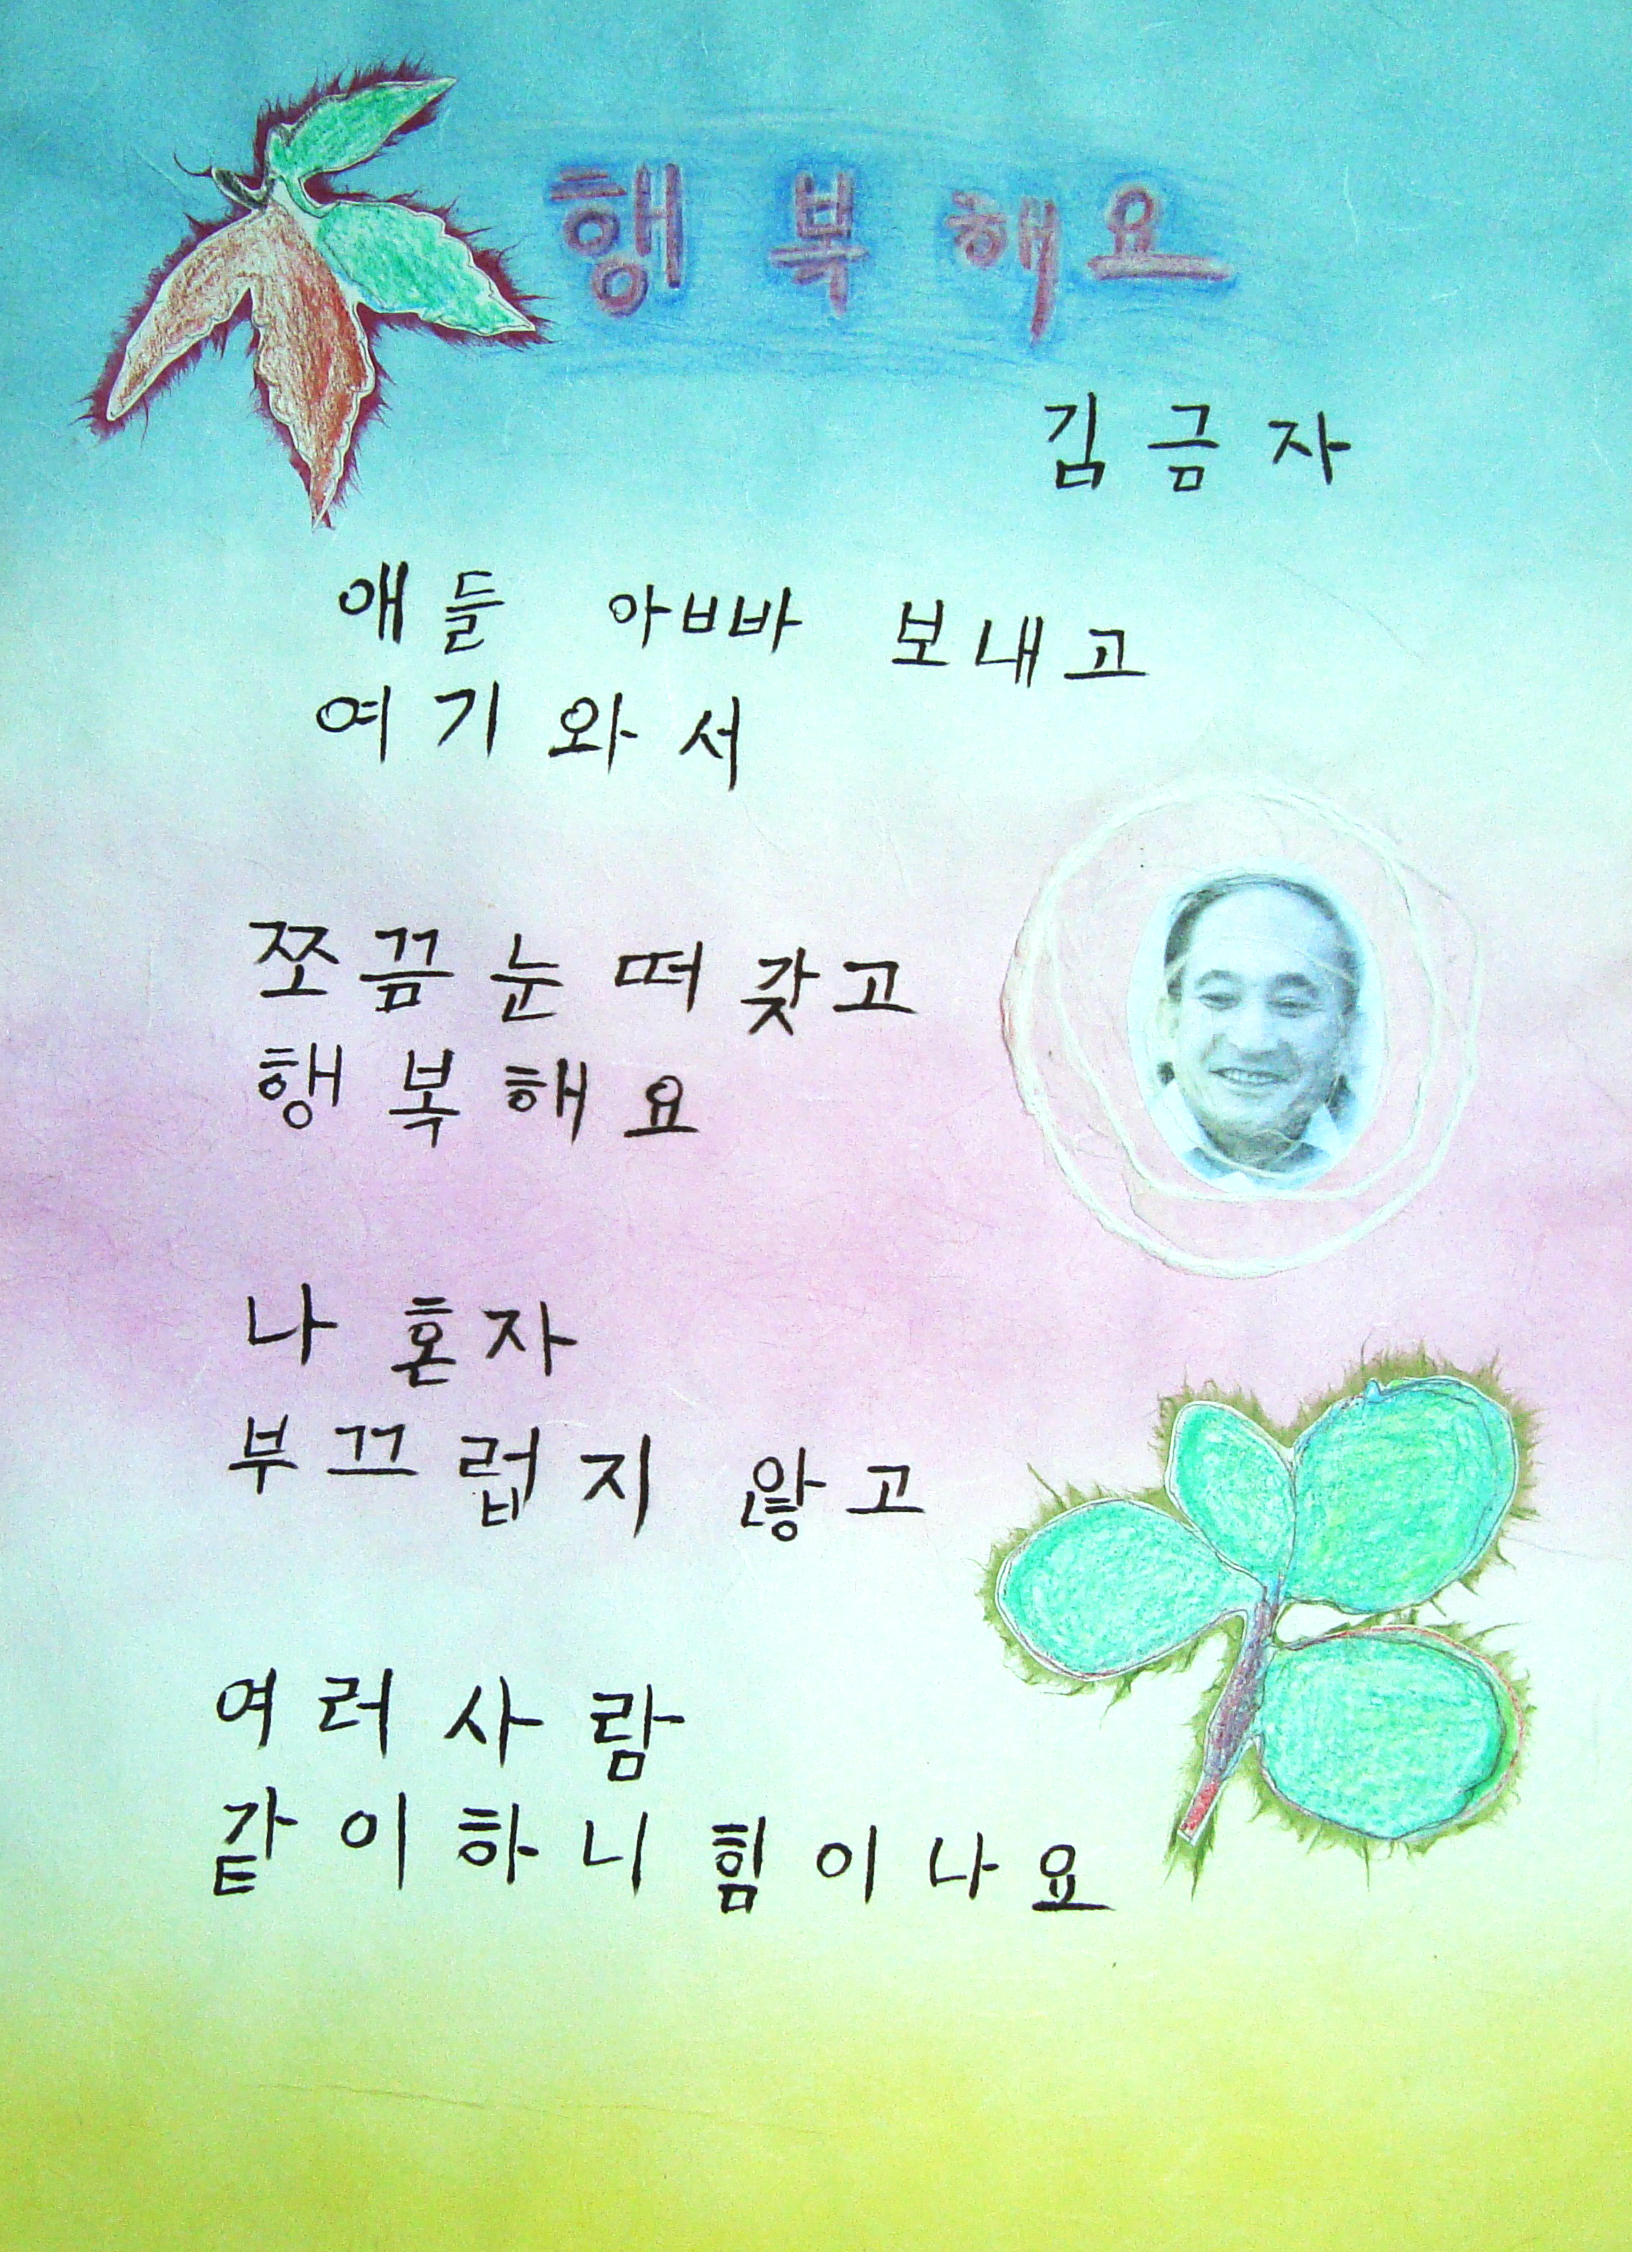 행복해요
김금자
애들 아빠 보내고
여기와서
쪼끔눈떠갖고
행복해요
나 혼자
부끄럽지 않고
여러사람
같이하니힘이나요